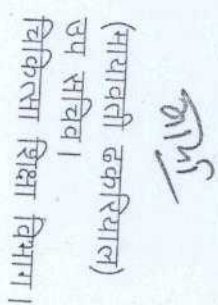 (मायावती ढकरियाल)
उप सचिव।
चिकित्सा शिक्षा विभाग।